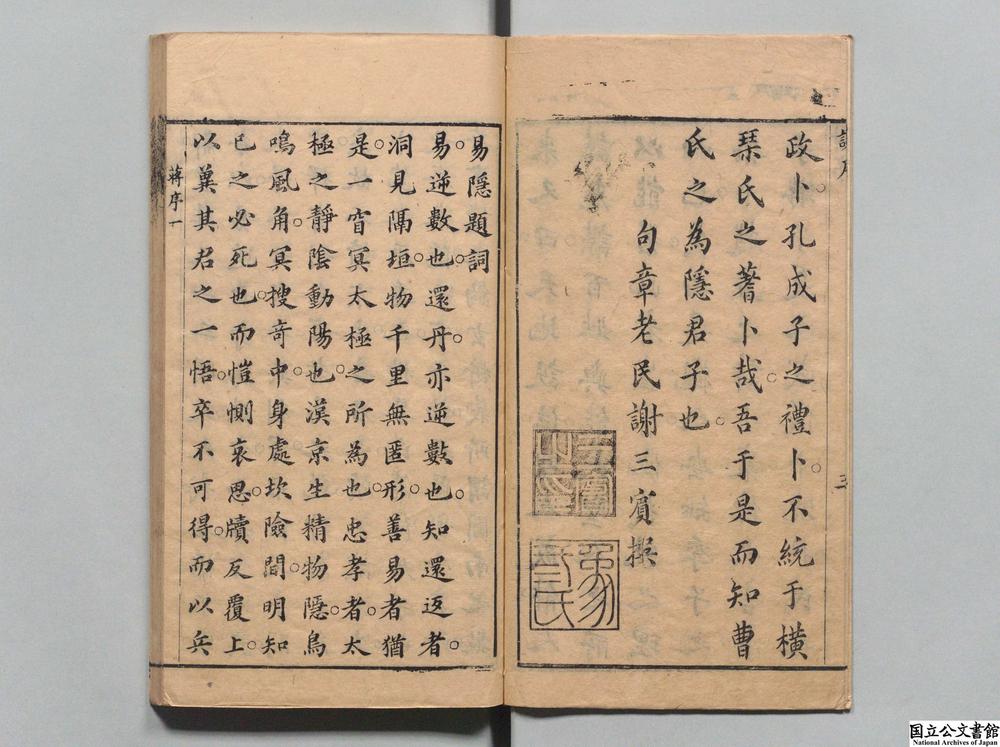 政卜孔成子之禮卜不統于橫
琴氏之蓍卜哉吾于是而知曹
氏之為隱君子也
句章老民謝三賓撰
三
易隱題詞
易逆數也還丹亦逆數也知還返者
洞見隔垣物千里無匿形善易者猶
是一窅冥太極之所為也忠孝者太
極之靜陰動陽也漢京生精物隱鳥
鳴風角冥搜奇中身處坎險間明知
已之必死也而愷惻哀思牘反覆上
以冀其君之一悟卒不可得而以兵
蔣序一
国立公文書館
National Archives of Japan